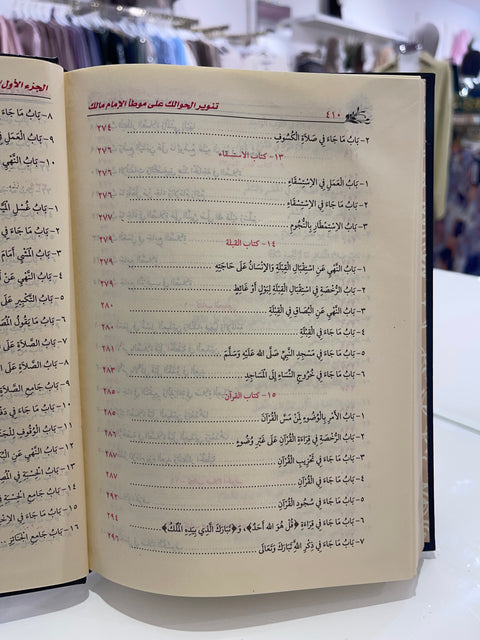 ٤١٠ تنوير الحوالك على موطأ الإمام مالك
٢- بَابُ مَا جَاءَ فِي صَلَاةِ الْكُسُوفِ ........ ٢٧٤
١٣- كتاب الاستسقاء ٢٧٦
١- بَابُ الْعَمَلِ فِي الِاسْتِسْقَاءِ ........ ٢٧٦
٢- بَابُ مَا جَاءَ فِي الِاسْتِسْقَاءِ ........ ٢٧٦
٣- بَابُ الِاسْتِمْطَارِ بِالنُّجُومِ ........ ٢٧٧
١٤- كتاب القبلة ٢٧٩
١- بَابُ النَّهْيِ عَنِ اسْتِقْبَالِ الْقِبْلَةِ وَالْإِنْسَانُ عَلَى حَاجَتِهِ ........ ٢٧٩
٢- بَابُ الرُّخْصَةِ فِي اسْتِقْبَالِ الْقِبْلَةِ لِبَوْلٍ أَوْ غَائِطٍ ........ ٢٧٩
٣- بَابُ النَّهْيِ عَنِ الْبُصَاقِ فِي الْقِبْلَةِ ........ ٢٨٠
٤- بَابُ مَا جَاءَ فِي الْقِبْلَةِ ........ ٢٨٠
٥- بَابُ مَا جَاءَ فِي مَسْجِدِ النَّبِيِّ صَلَّى الله عَلَيْهِ وَسَلَّمَ ........ ٢٨١
٦- بَابُ مَا جَاءَ فِي خُرُوجِ النِّسَاءِ إِلَى الْمَسَاجِدِ ........ ٢٨٣
١٥- كتاب القرآن ٢٨٥
١- بَابُ الْأَمْرِ بِالْوُضُوءِ لِمَنْ مَسَّ الْقُرْآنَ ........ ٢٨٥
٢- بَابُ الرُّخْصَةِ فِي قِرَاءَةِ الْقُرْآنِ عَلَى غَيْرِ وُضُوءٍ ........ ٢٨٦
٣- بَابُ مَا جَاءَ فِي تَحْزِيبِ الْقُرْآنِ ........ ٢٨٧
٤- بَابُ مَا جَاءَ فِي الْقُرْآنِ ........ ٢٨٧
٥- بَابُ مَا جَاءَ فِي سُجُودِ الْقُرْآنِ ........ ٢٩٢
٦- بَابُ مَا جَاءَ فِي قِرَاءَةِ ﴿قُلْ هُوَ اللهُ أَحَدٌ﴾، وَ﴿تَبَارَكَ الَّذِي بِيَدِهِ الْمُلْكُ﴾ ........ ٢٩٤
٧- بَابُ مَا جَاءَ فِي ذِكْرِ اللهِ تَبَارَكَ وَتَعَالَى ........ ٢٩٦
الجزء الأول
٨- بَابُ مَا جَاءَ
٩- بَابُ الْعَمَلِ فِي
١٠- بَابُ النَّهْيِ
١- بَابُ غُسْلِ
٢- بَابُ مَا جَاءَ فِي
٣- بَابُ الْمَشْيِ أَمَامَ
٤- بَابُ النَّهْيِ عَنْ
٥- بَابُ التَّكْبِيرِ عَلَى
٦- بَابُ مَا يَقُولُ
٧- بَابُ الصَّلَاةِ عَلَى
٨- بَابُ الصَّلَاةِ
٩- بَابُ جَامِعِ الصَّلَاةِ
١٠- بَابُ مَا جَاءَ فِي
١١- بَابُ الْوُقُوفِ
١٢- بَابُ النَّهْيِ عَنِ
١٣- بَابُ الْحِسْبَةِ فِي
١٤- بَابُ جَامِعِ الْحِسْبَةِ
١٥- بَابُ مَا جَاءَ فِي
١٦- بَابُ جَامِعِ الْجَنَائِزِ